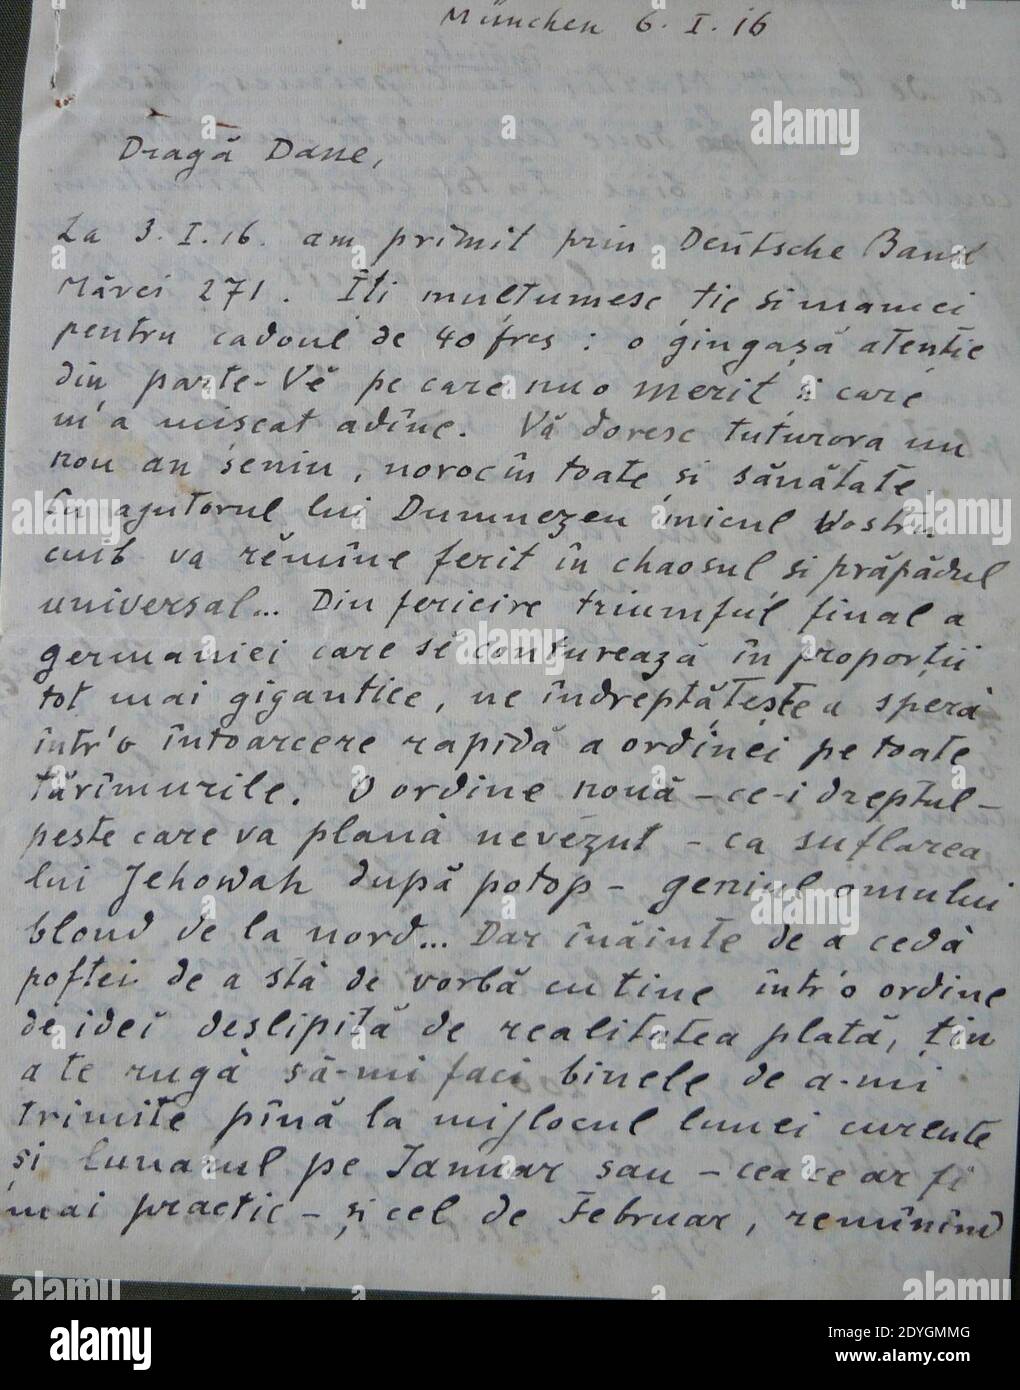 München 6. I. 16
Dragă Dane,
La 3. I. 16. am primit prin Deutsche Bank
Mărci 271. Iti multumesc, tie si mamei
pentru cadoul de 40 frcs : o gingașă atenție
din parte-Vă pe care nu o merit și care
m'a miscat adînc. Vă doresc tuturora un
nou an senin, noroc în toate și sănătate
Cu ajutorul lui Dumnezeu unicul Vostru
cuib va rămîne ferit în chaosul și prăpădul
universal... Din fericire triumful final a
germaniei care se conturează în proporții
tot mai gigantice, ne îndreptățește a sperà
într'o întoarcere rapidă a ordinei pe toate
tărîmurile. O ordine nouă – ce-i dreptul –
peste care va planà nevăzut – ca suflarea
lui Jehowah după potop – geniul omului
blond de la nord... Dar înăinte de a cedà
poftei de a stà de vorbă cu tine într'o ordine
de idei deslipită de realitatea plată, țin
a te rugà să-mi faci binele de a-mi
trimite pînă la mijlocul lunei curente
și lunarul pe Ianuar sau – ceea ce ar fi
mai practic – și cel de Februar, remînînd
alamy
alamy
Image ID: 2DYGMMG
www.alamy.com